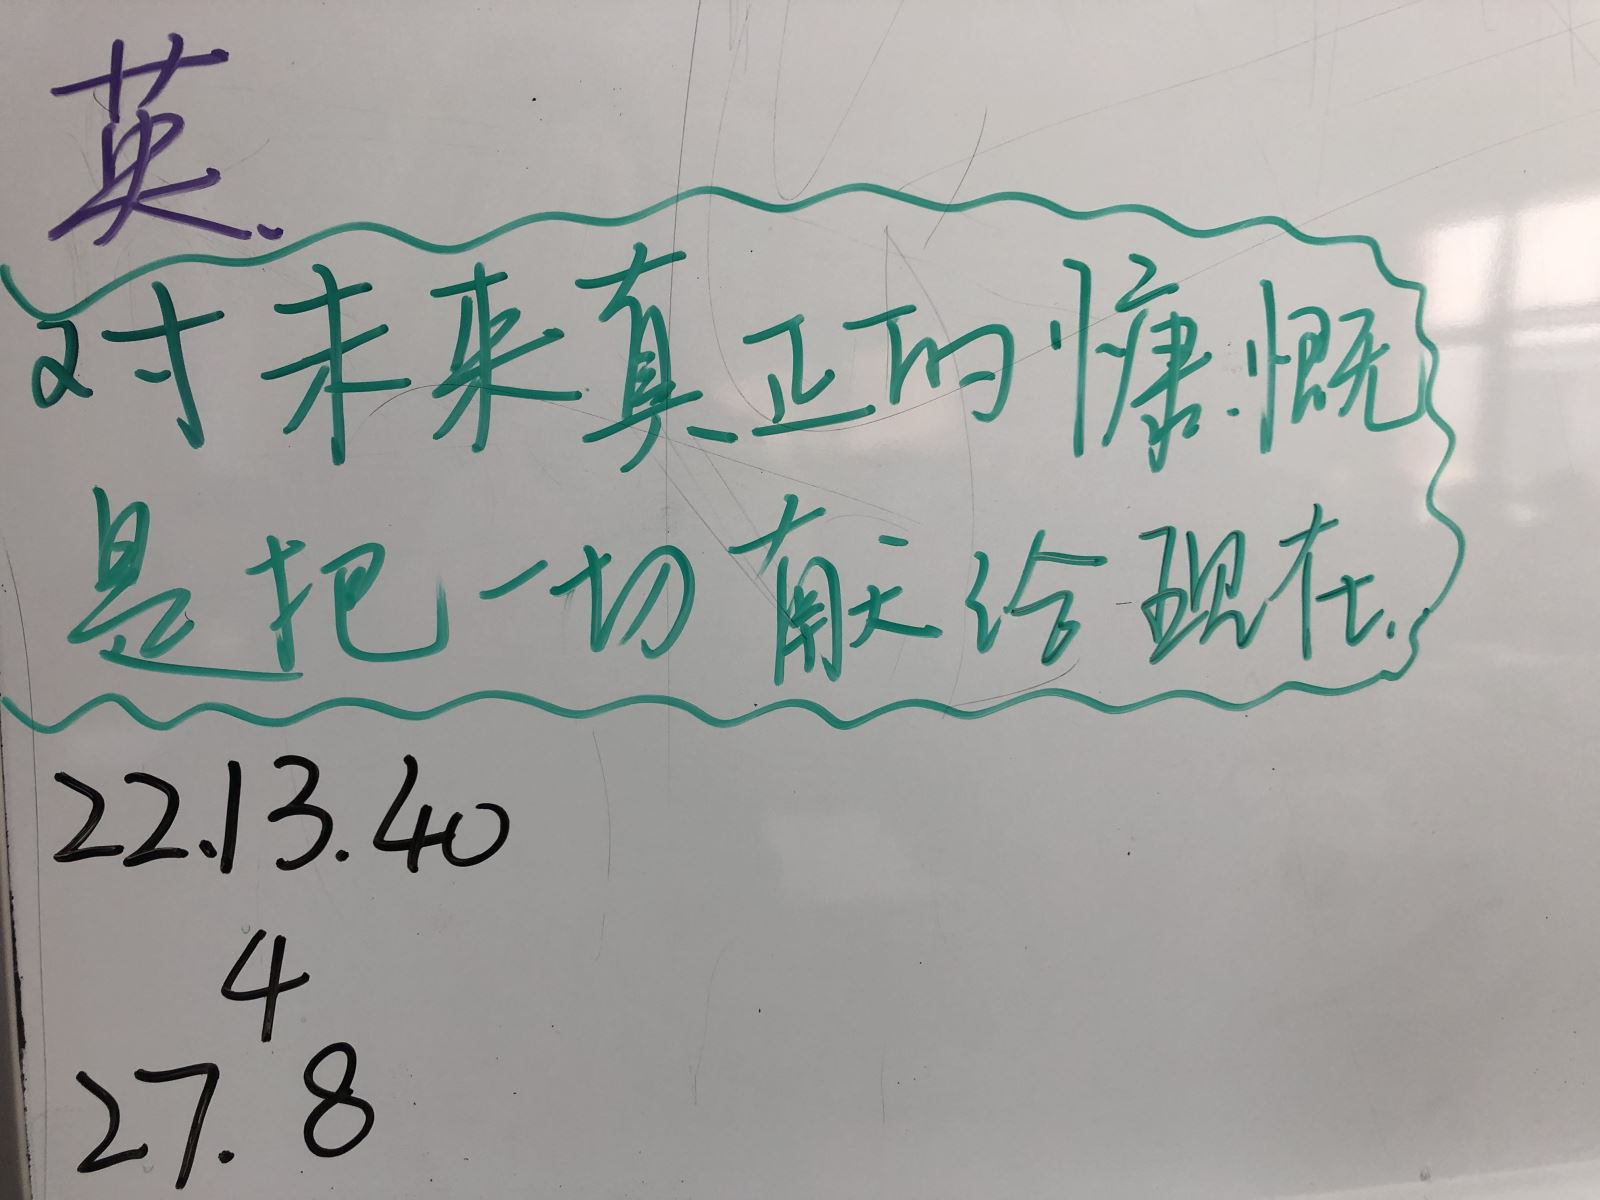 英.
对未来真正的慷慨
是把一切献给现在.
22.13.40
4
27. 8